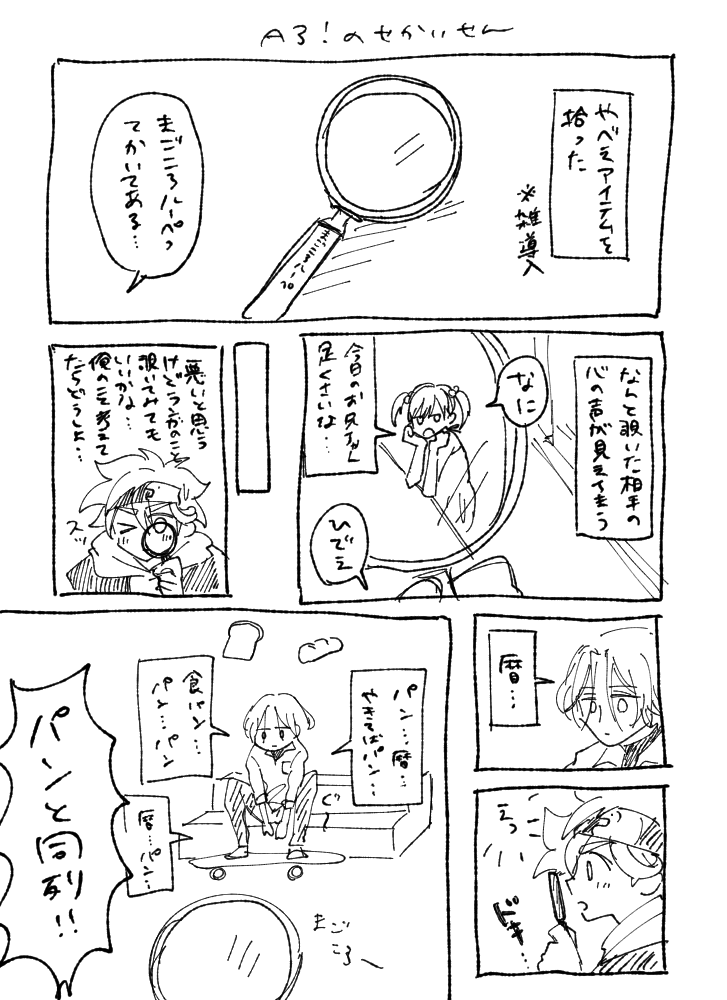 A3!のせかいせん
やべえアイテムを
拾った
※雑導入
まごころルーペ
まごころルーペっ
てかいてある…
なんと覗いた相手の
心の声が見えてしまう
なに
今日のお兄ちゃん
足くさいな…
ひでえ
悪いと思う
けどランガのこと
覗いてみても
いいかな…
俺のこと考えて
たらどうしよ…
スッ
暦…
えっ
ドキ…
パン…暦…
やきそばパン…
食パン…
パン…パン
暦…パン…
ぐ〜
まごころ〜
パンと
同列!!